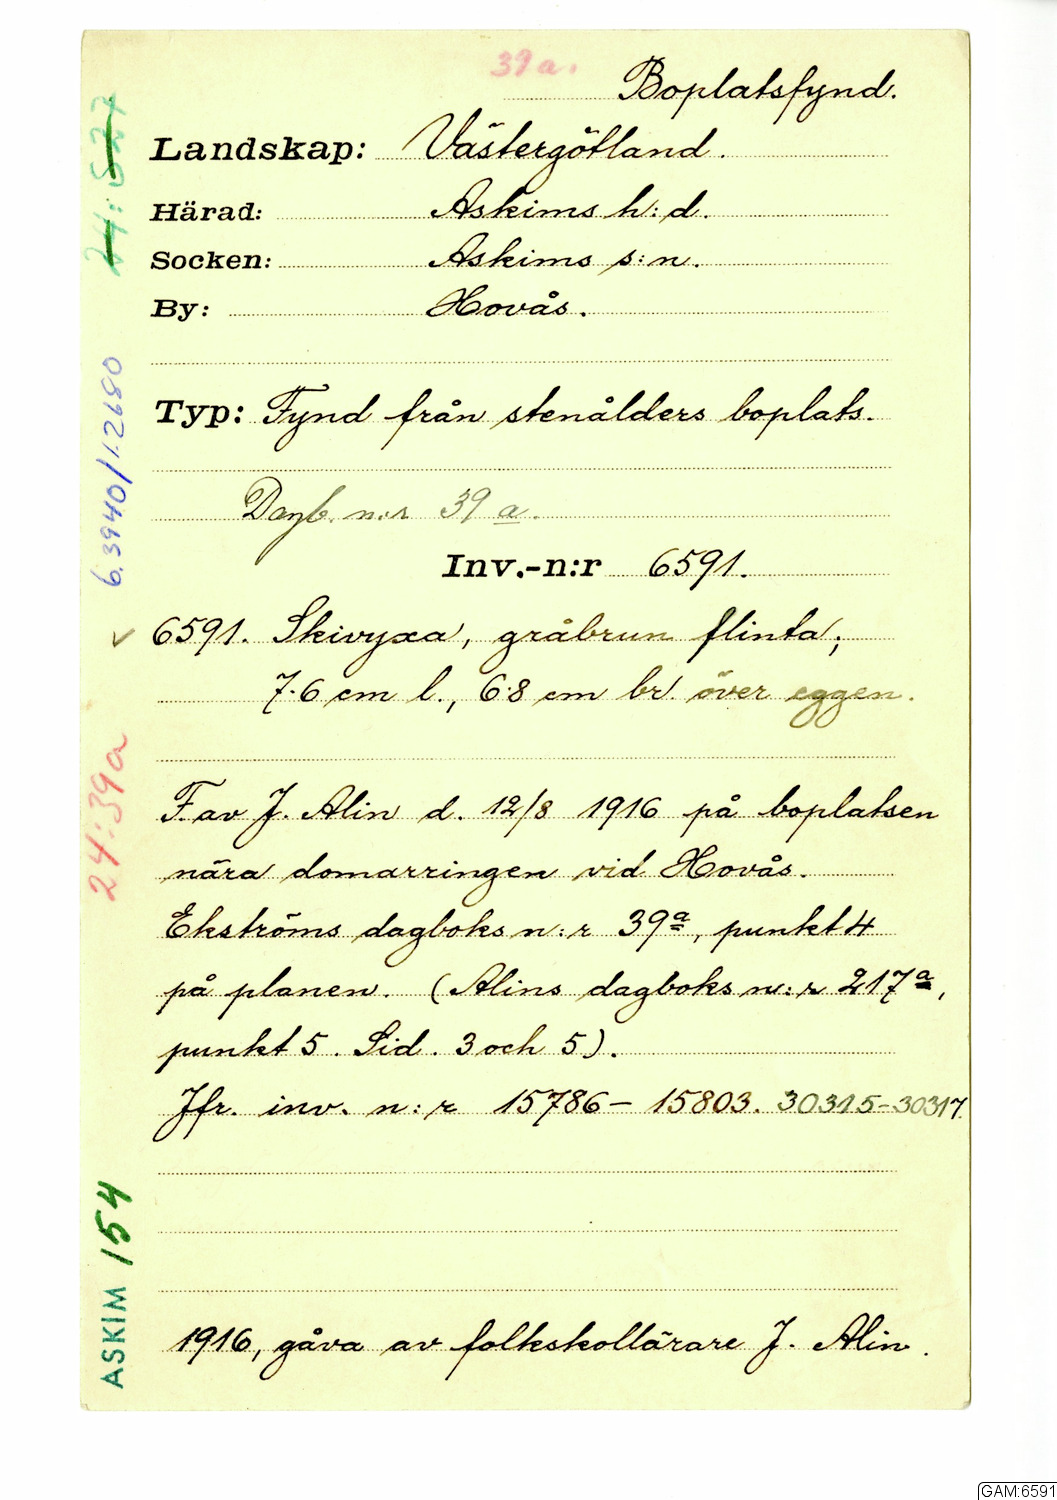 39a.
Boplatsfynd.
Landskap: Västergötland.
Härad: Askims h:d.
Socken: Askims s:n.
By: Hovås.
Typ: Fynd från stenålders boplats.
Dagb. n:r 39 a.
Inv.-n:r 6591.
✓ 6591. Skivyxa, gråbrun flinta;
7.6 cm l., 6.8 cm br. över eggen.
F. av J. Alin d. 12/8 1916 på boplatsen
nära domarringen vid Hovås.
Ekströms dagboks n:r 39a, punkt 4
på planen. (Alins dagboks n:r 217a,
punkt 5. Sid. 3 och 5).
Jfr. inv. n:r 15786 – 15803. 30315-30317.
1916, gåva av folkskollärare J. Alin.
24:527
6.3940/1.2680
24:39a
ASKIM 154
GAM:6591